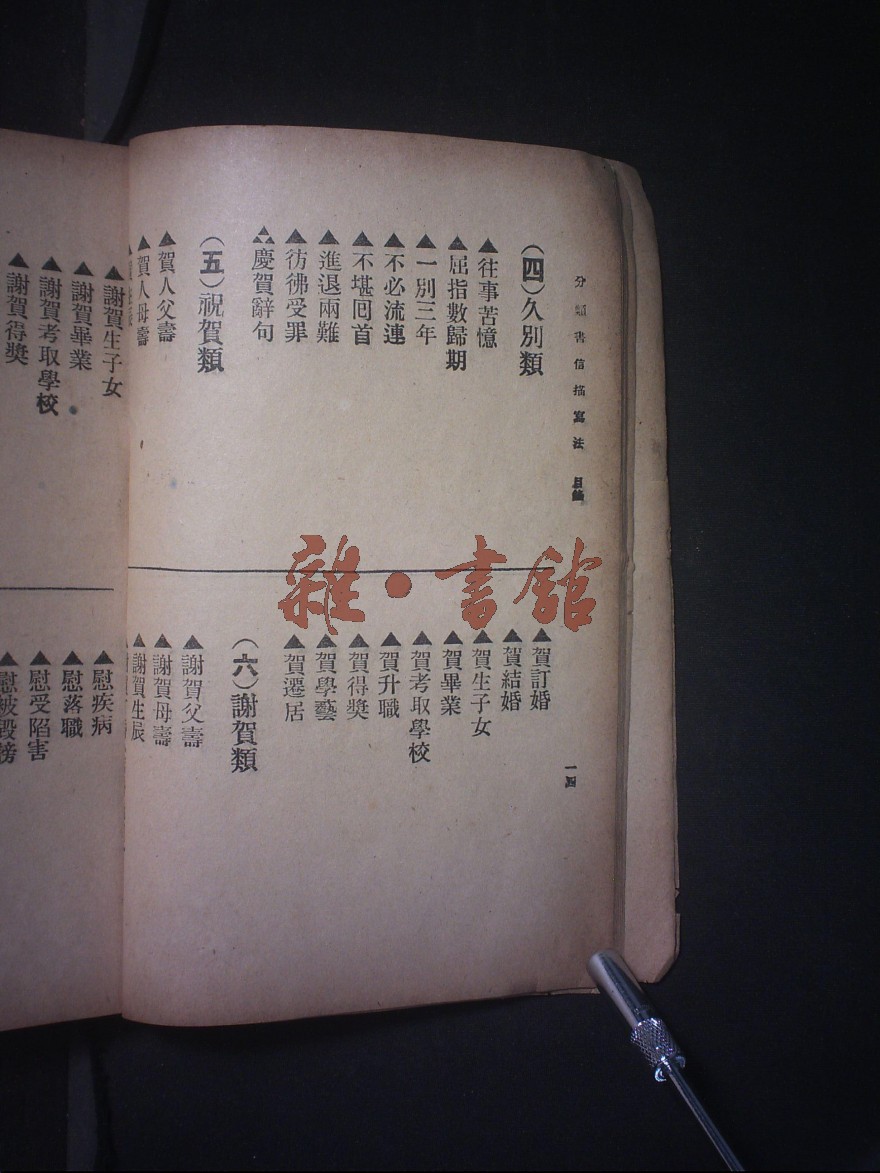 分類書信描寫法 目錄
一四
(四)久別類
▲往事苦憶
▲屈指數歸期
▲一別三年
▲不必流連
▲不堪回首
▲進退兩難
▲彷彿受罪
慶賀辭句
(五)祝賀類
▲賀人父壽
▲賀人母壽
▲賀訂婚
▲賀結婚
▲賀生子女
▲賀畢業
▲賀考取學校
▲賀升職
▲賀得獎
▲賀學藝
▲賀遷居
(六)謝賀類
▲謝賀父壽
▲謝賀母壽
▲謝賀生辰
▲謝賀生子女
▲謝賀畢業
▲謝賀考取學校
▲謝賀得獎
▲慰疾病
▲慰落職
▲慰受陷害
▲慰被毀謗
雜·書館